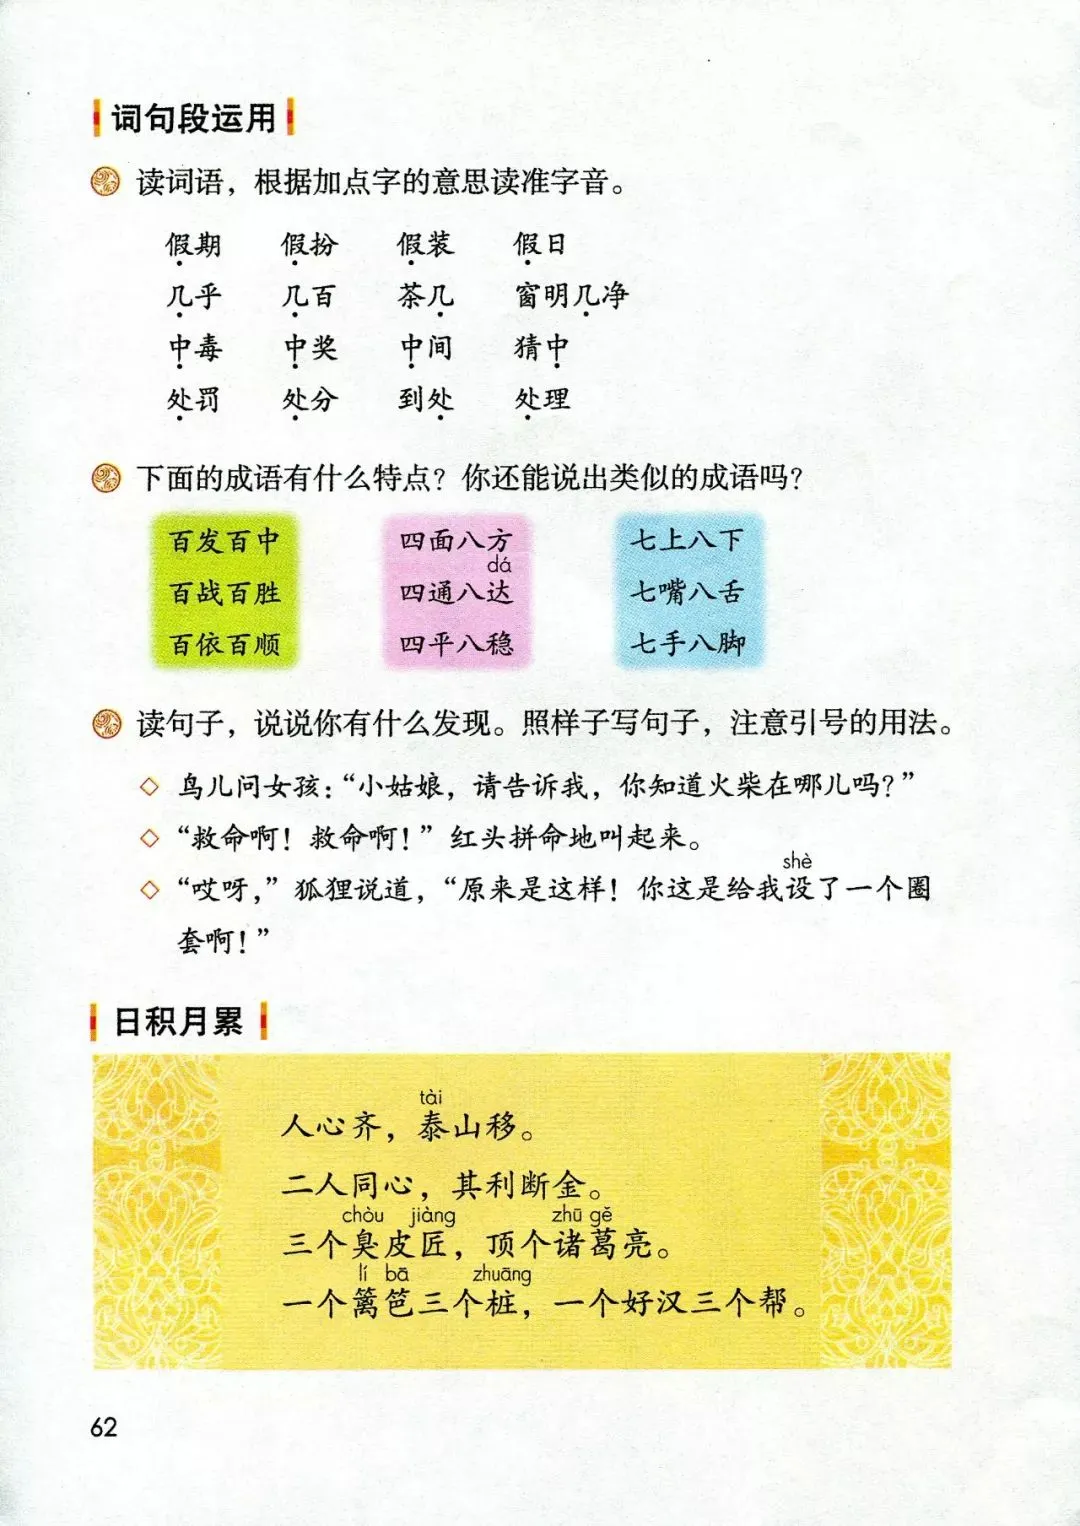 词句段运用
读词语，根据加点字的意思读准字音。
假期 假扮 假装 假日
几乎 几百 茶几 窗明几净
中毒 中奖 中间 猜中
处罚 处分 到处 处理
下面的成语有什么特点？你还能说出类似的成语吗？
百发百中 四面八方 七上八下
dá
百战百胜 四通八达 七嘴八舌
百依百顺 四平八稳 七手八脚
读句子，说说你有什么发现。照样子写句子，注意引号的用法。
◇ 鸟儿问女孩：“小姑娘，请告诉我，你知道火柴在哪儿吗？”
◇ “救命啊！救命啊！”红头拼命地叫起来。
shè
◇ “哎呀，”狐狸说道，“原来是这样！你这是给我设了一个圈
套啊！”
日积月累
tài
人心齐，泰山移。
二人同心，其利断金。
chòu jiàng zhū gě
三个臭皮匠，顶个诸葛亮。
lí bā zhuāng
一个篱笆三个桩，一个好汉三个帮。
62